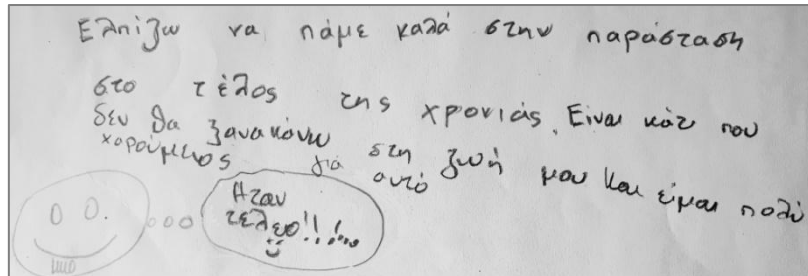 Ελπίζω να πάμε καλά στην παράσταση
στο τέλος της χρονιάς. Είναι κάτι που
δεν θα ξανακάνω στη ζωή μου και είμαι πολύ
χαρούμενος για αυτό
Ηταν
τέλειο!!!...